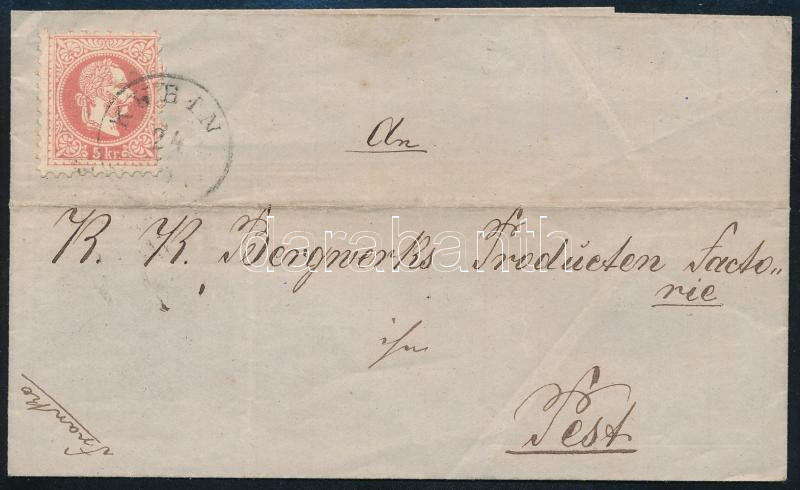 KUBIN
24
5 kr.
An
K. K. Bergwerks Producten Facto„
rie
in
Pest
Franko
darabanth